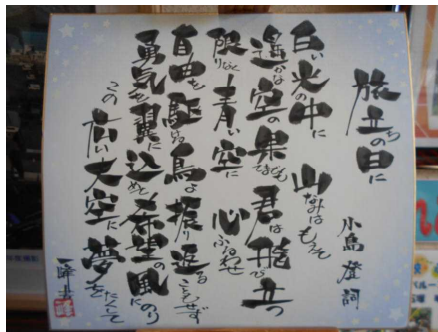 旅立ちの日に
小島 登 詞
白い光の中に 山なみはもえて
遥かな空の果てまでも 君は飛び立つ
限りなく青い空に 心ふるわせ
自由を駆ける鳥よ 振り返ることもせず
勇気を翼に込めて 希望の風にのり
この広い大空に 夢をたくして